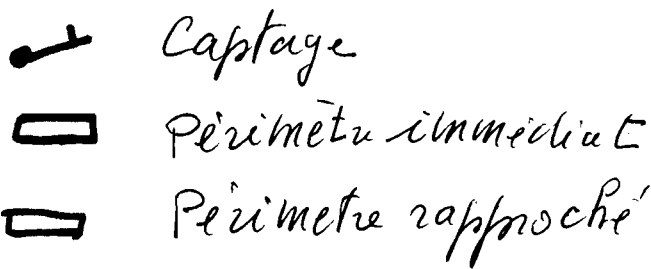 Captage
Périmètre immédiat
Périmetre rapproché